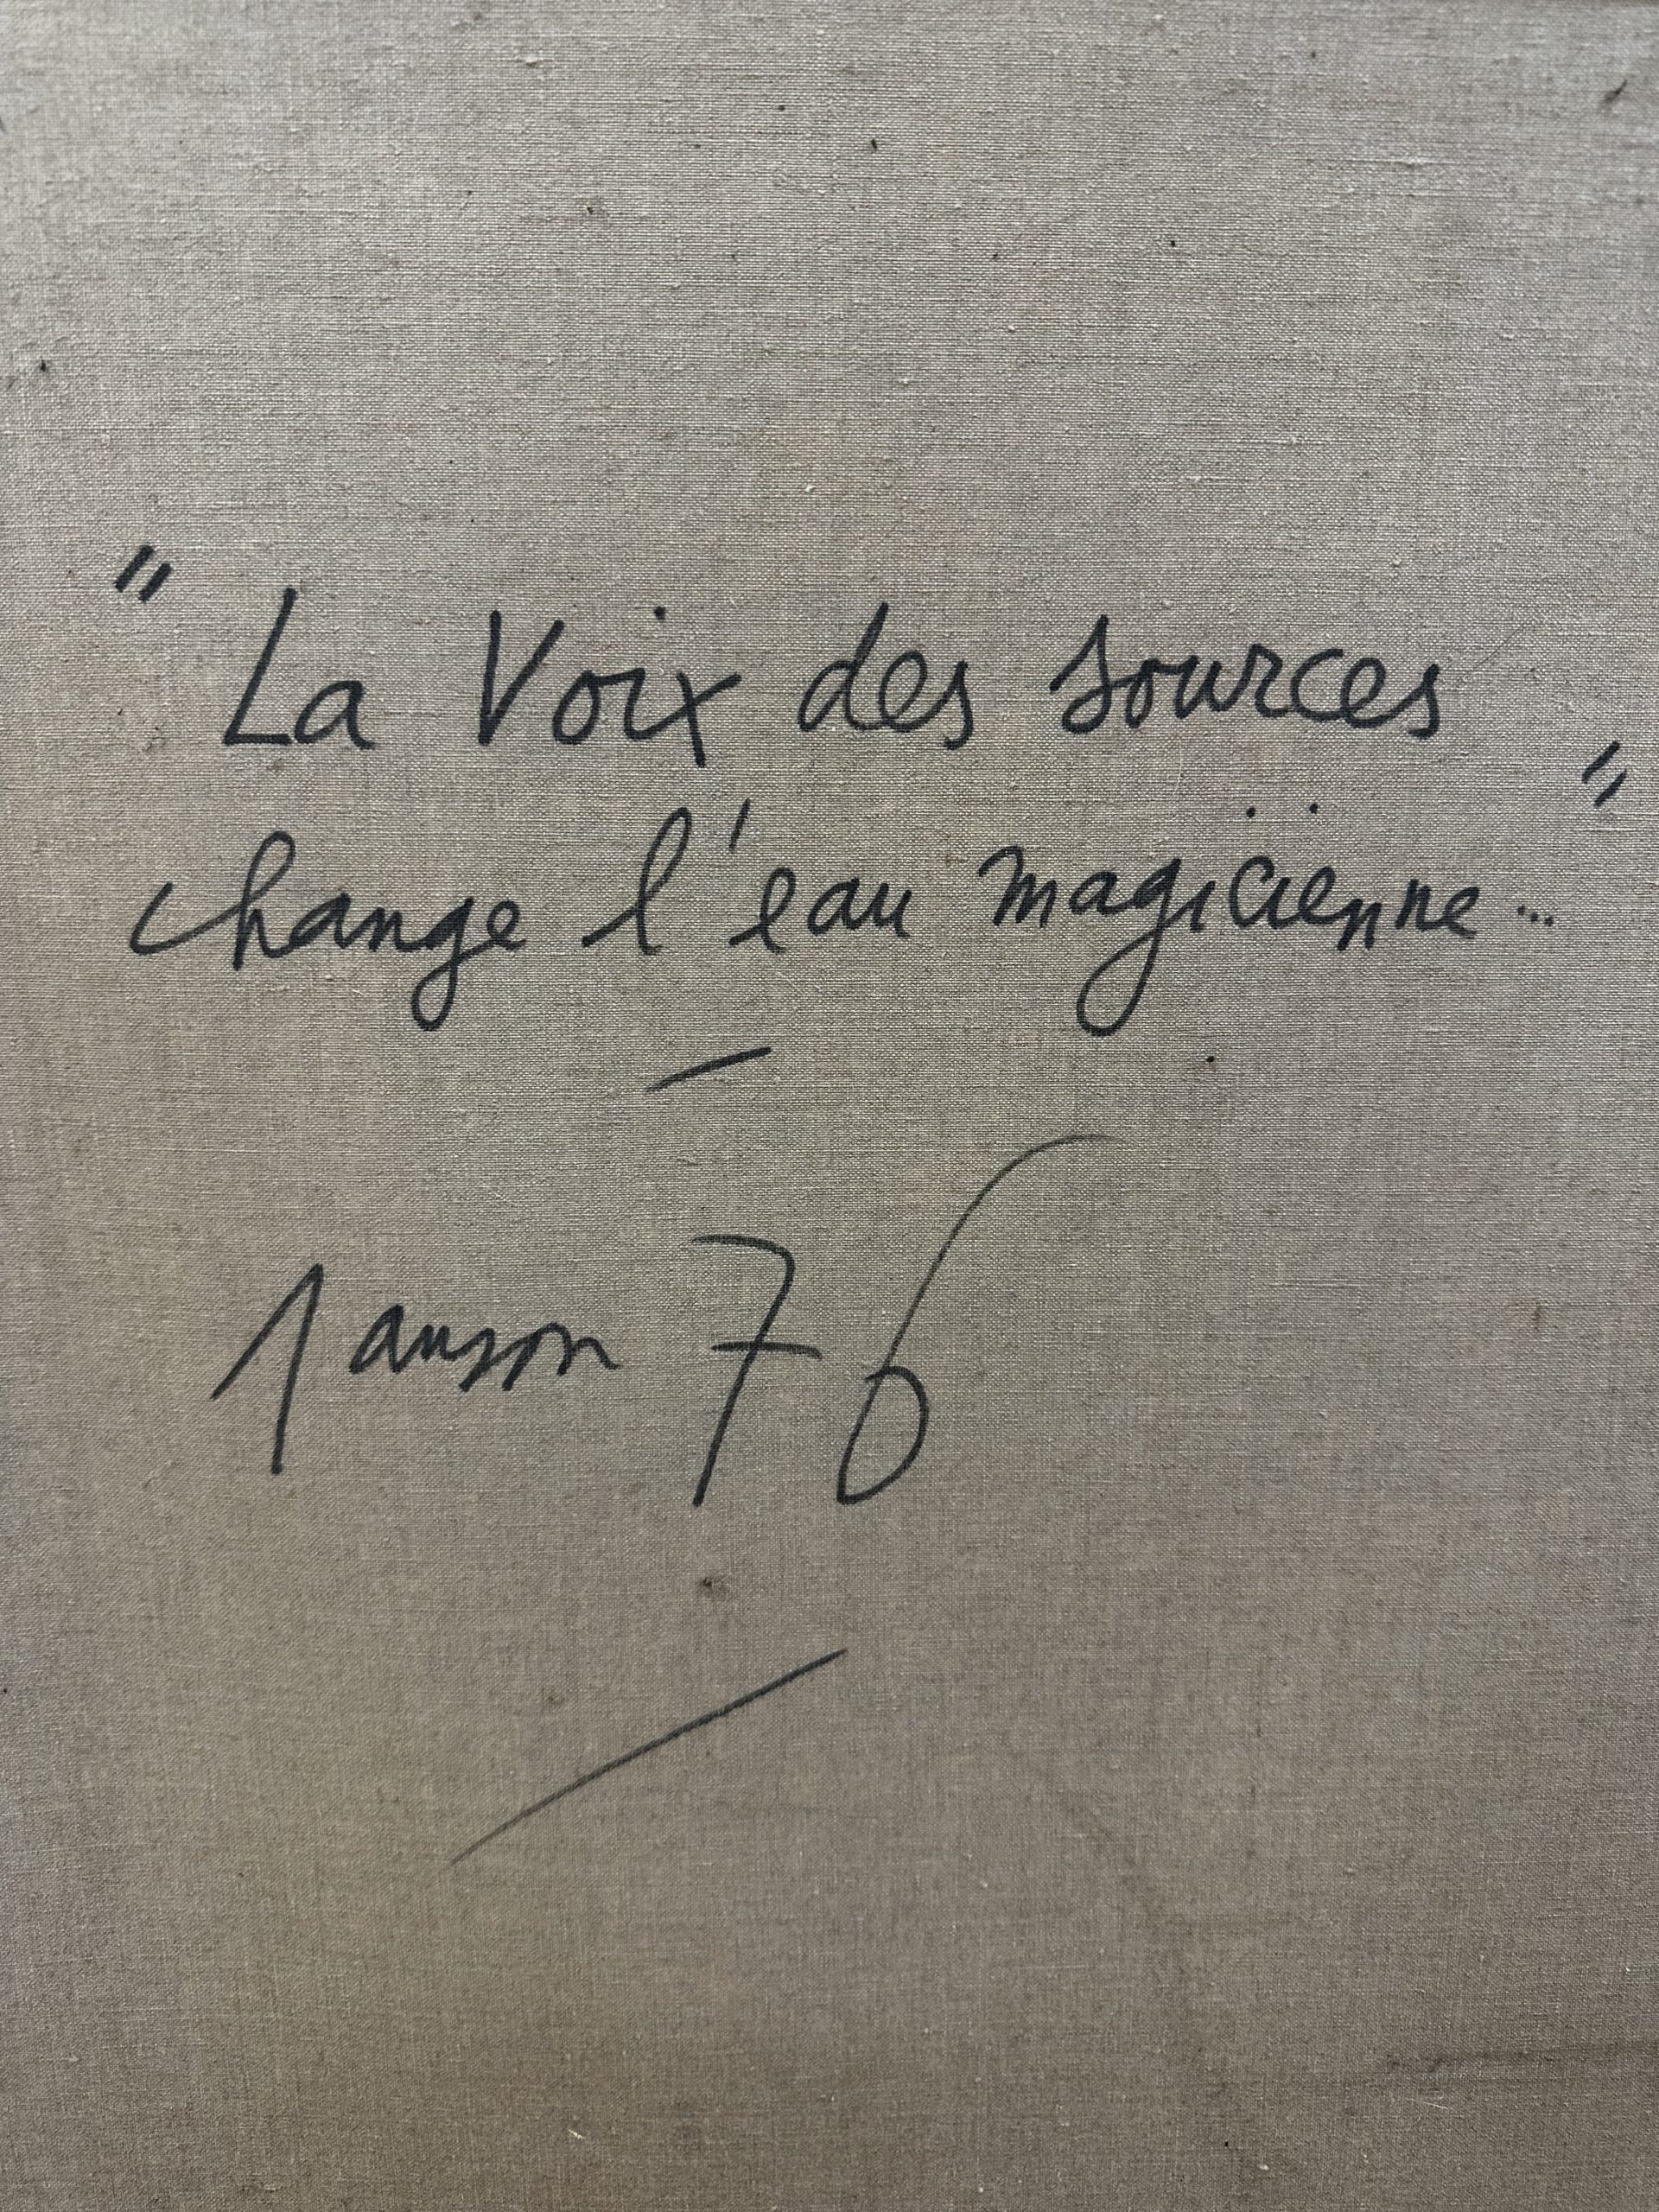 "La Voix des sources
change l'eau magicienne..."
—
76